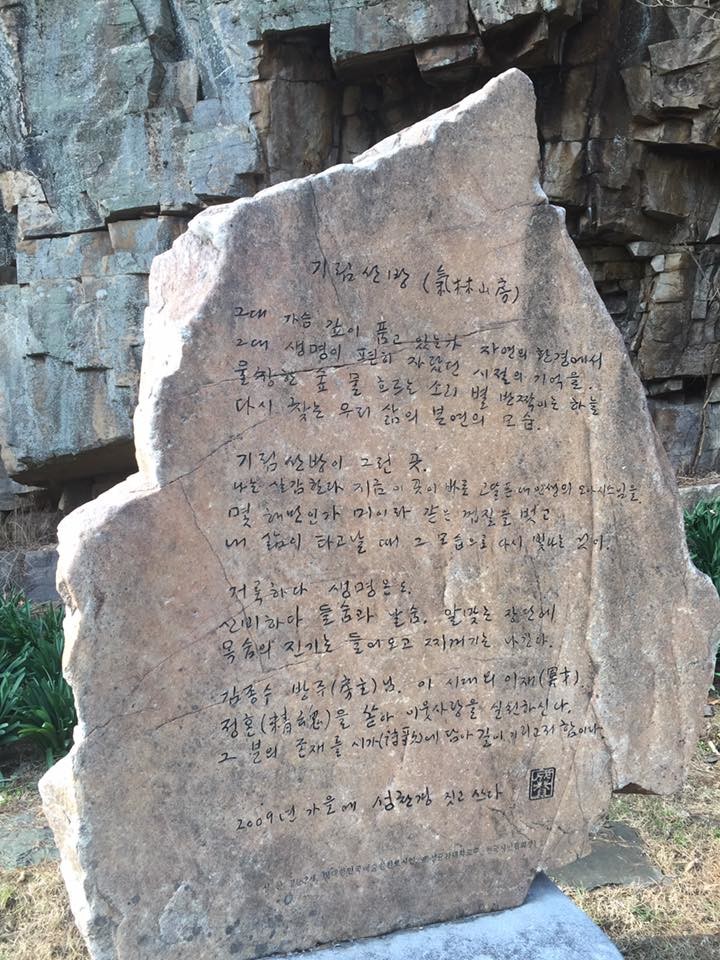 기림산방 (氣林山房)
그대 가슴 깊이 품고 있는가
그대 생명이 편히 자랐던 자연의 환경에서
울창한 숲 물 흐르는 소리 별 반짝이는 하늘
다시 찾는 우리 삶의 본연의 모습.
시절의 기억을.
기림산방이 그런 곳.
나는 실감한다 지금 이 곳이 바로 고달픈 내 인생의 오아시스임을
몇 해만인가 미이라 같은 껍질을 벗고
내 삶이 타고날 때 그 모습으로 다시 빛나는 것이.
거룩하다 생명온도.
신비하다 들숨과 날숨. 알맞는 장단에
목숨의 진기는 들어오고 찌꺼기는 나간다.
김종수 방주(房主)님. 이 시대의 이재(異才).
정혼(精魂)을 쏟아 이웃사랑을 실천하신다.
그 분의 존재를 시가(詩歌)에 담아 길이 기리고저 함이다.
2009년 가을에 성찬경 짓고 쓰다